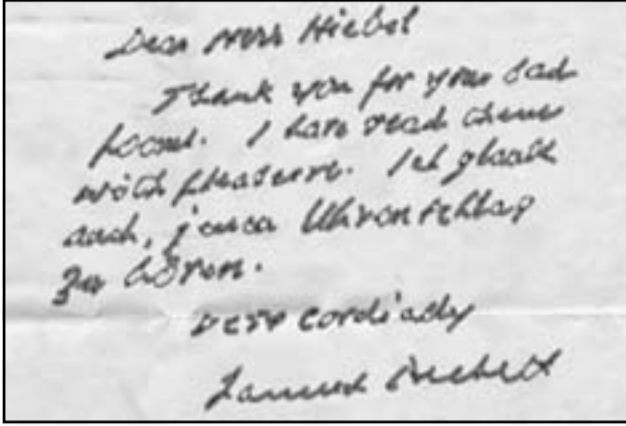 Dear Herr Hiebel
Thank you for your sad
poems. I have read them
with pleasure. Ich
auch, jenen Uhrenschlag
zu hören.
Very cordially
Samuel Beckett